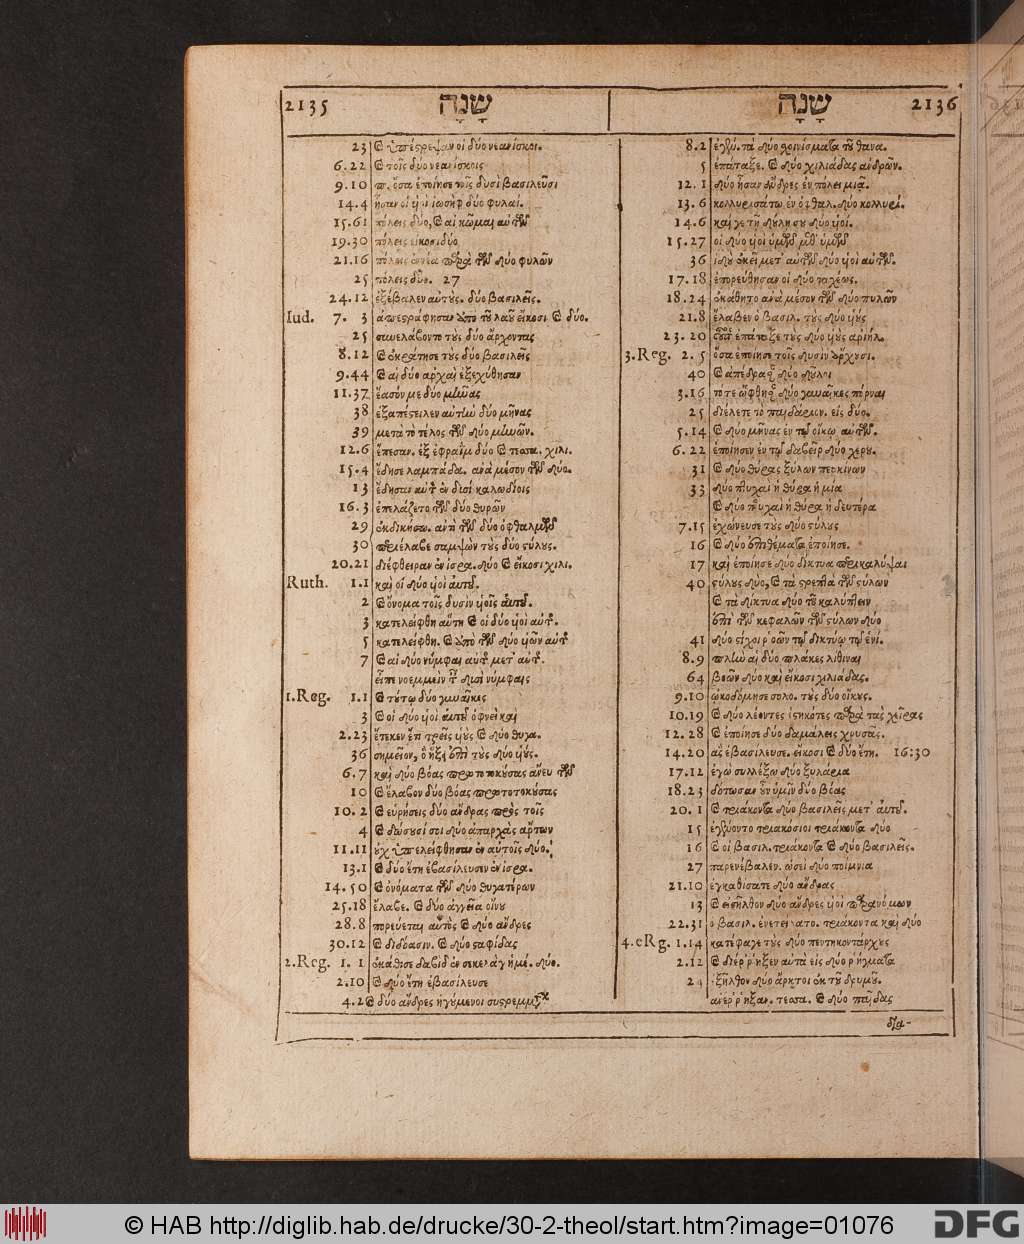 2135 שָׁנָה
23 & ὑπέστρεψαν οἱ δύο νεανίσκοι.
6.22 & τοῖς δύο νεανίσκοις
9.10 ὅσα ἐποίησε τοῖς δυσὶ βασιλεῦσι
14.4 ἦσαν οἱ υἱοὶ ἰωσὴφ δύο φυλαί.
15.61 πόλεις δύο, & αἱ κῶμαι αὐτῶν
19.30 πόλεις εἰκοσιδύο
21.16 πόλεις ἐννέα παρὰ τῶν δύο φυλῶν
25 πόλεις δύο. 27
24.12 ἐξέβαλεν αὐτούς. δύο βασιλεῖς.
Iud. 7. 3 ἀπεστράφησαν ἀπὸ τοῦ λαοῦ εἴκοσι & δύο.
25 συνελάβοντο τοὺς δύο ἄρχοντας
8.12 & ἐκράτησε τοὺς δύο βασιλεῖς
9.44 & αἱ δύο ἀρχαὶ ἐξεχύθησαν
11.37 ἔασόν με δύο μῆνας
38 ἐξαπέστειλεν αὐτὴν δύο μῆνας
39 μετὰ τὸ τέλος τῶν δύο μηνῶν.
12.6 ἔπεσαν. ἐξ ἐφραῒμ δύο & τεσσα. χιλι.
15.4 ἔδησε λαμπάδα. ἀνὰ μέσον τῶν δύο.
13 ἔδησαν αὐτὸν ἐν δυσὶ καλωδίοις
16.3 ἐπελάβετο τῶν δύο θυρῶν
29 ἐκδικήσω. ἀντὶ τῶν δύο ὀφθαλμῶν
30 περιέλαβε σαμψὼν τοὺς δύο στύλους.
20.21 διέφθειραν ἐν ἰσρα. δύο & εἴκοσι χιλι.
Ruth. 1.1 καὶ οἱ δύο υἱοὶ αὐτοῦ.
2 & ὄνομα τοῖς δυσὶν υἱοῖς αὐτοῦ.
3 κατελείφθη αὕτη & οἱ δύο υἱοὶ αὐτῆς
5 κατελείφθη. & ἀπὸ τῶν δύο υἱῶν αὐτῆς
7 & αἱ δύο νύμφαι αὐτῆς μετ' αὐτῆς.
εἶπε νοεμμεὶν ταῖς δυσὶ νύμφαις
1.Reg. 1.1 & τούτῳ δύο γυναῖκες
3 & οἱ δύο υἱοὶ αὐτοῦ ὀφνεὶ καὶ
2.23 ἔτεκεν ἔτι τρεῖς υἱοὺς & δύο θυγα.
36 σημεῖον, ὃ ἥξει ἐπὶ τοὺς δύο υἱούς.
6.7 καὶ δύο βόας πρωτοτοκούσας ἄνευ τῶν
10 & ἔλαβον δύο βόας πρωτοτοκούσας
10.2 & εὑρήσεις δύο ἄνδρας πρὸς τοῖς
4 & δώσουσί σοι δύο ἀπαρχὰς ἄρτων
11.11 οὐχ ὑπελείφθησαν ἐν αὐτοῖς δύο.
13.1 & δύο ἔτη ἐβασίλευσεν ἐν ἰσρα.
14.50 & ὀνόματα τῶν δύο θυγατέρων
25.18 ἔλαβε. & δύο ἀγγεῖα οἴνου
28.8 πορεύεται αὐτὸς & δύο ἄνδρες
30.12 & διδόασιν. & δύο σταφίδας
2.Reg. 1. 1 ἐκάθισε δαβὶδ ἐν σεκελὰγ ἡμέ. δύο.
2.10 & δύο ἔτη ἐβασίλευσε
4.2 & δύο ἄνδρες ἡγούμενοι συστρεμμάτων
2136 שָׁנָה
8.2 ἐγένετο. τὰ δύο χοινίσματα τοῦ θανα.
5 ἐπάταξε. & δύο χιλιάδας ἀνδρῶν.
12. 1 δύο ἦσαν ἄνδρες ἐν πόλει μιᾷ.
13. 6 κολλυρισάτω. ἐν ὀφθαλ. δύο κολλυρί.
14.6 καί γε τῇ δούλῃ σου δύο υἱοί.
15.27 οἱ δύο υἱοὶ ὑμῶν μεθ' ὑμῶν
36 ἰδοὺ ἐκεῖ μετ' αὐτῶν δύο υἱοὶ αὐτῶν.
17.18 ἐπορεύθησαν οἱ δύο ταχέως.
18.24 ἐκάθητο ἀνὰ μέσον τῶν δύο πυλῶν
21.8 ἔλαβεν ὁ βασιλ. τοὺς δύο υἱοὺς
23. 20 αὐτὸς ἐπάταξε τοὺς δύο υἱοὺς ἀριήλ.
3.Reg. 2. 5 ὅσα ἐποίησε τοῖς δυσὶν ἄρχουσι.
40 & ἀπέδρασαν δύο δοῦλοι
3.16 τότε ὤφθησαν δύο γυναῖκες πόρναι
25 διέλετε τὸ παιδάριον. εἰς δύο.
5.14 & δύο μῆνας ἐν τῷ οἴκῳ αὐτῶν.
6.22 ἐποίησεν ἐν τῷ δαβεὶρ δύο χερου.
31 & δύο θύρας ξύλων πευκίνων
33 δύο πτυχαὶ ἡ θύρα ἡ μία
& δύο πτυχαὶ ἡ θύρα ἡ δευτέρα
7.15 ἐχώνευσε τοὺς δύο στύλους
16 & δύο ἐπιθέματα ἐποίησε.
17 καὶ ἐποίησε δύο δίκτυα περικαλύψαι
40 στύλους δύο, & τὰ στρεπτὰ τῶν στύλων
& τὰ δίκτυα δύο τοῦ καλύπτειν
ἐπὶ τῶν κεφαλῶν τῶν στύλων δύο
41 δύο στίχοι ῥοῶν τῷ δικτύῳ τῷ ἑνί.
8.9 πλὴν αἱ δύο πλάκες λίθιναι
64 βοῶν δύο καὶ εἴκοσι χιλιάδας.
9.10 ᾠκοδόμησε σολο. τοὺς δύο οἴκους.
10.19 & δύο λέοντες ἑστηκότες παρὰ τὰς χεῖρας
12.28 & ἐποίησε δύο δαμάλεις χρυσᾶς.
14.20 ἃς ἐβασίλευσε. εἴκοσι & δύο ἔτη. 16:30
17.12 ἐγὼ συλλέξω δύο ξυλάρια
18.23 δότωσαν οὖν ἡμῖν δύο βόας
20. 1 & τριάκοντα δύο βασιλεῖς μετ' αὐτοῦ.
15 ἐγένοντο τριακόσιοι τριάκοντα δύο
16 & οἱ βασιλ. τριάκοντα & δύο βασιλεῖς.
27 παρενέβαλεν. ὡσεὶ δύο ποίμνια
21.10 ἐγκαθίσατε δύο ἄνδρας
13 & εἰσῆλθον δύο ἄνδρες υἱοὶ παρανόμων
22.31 ὁ βασιλ. ἐνετείλατο. τριάκοντα καὶ δύο
4.eRg. 1.14 κατέφαγε τοὺς δύο πεντηκοντάρχους
2.12 & διέῤῥηξεν αὐτὰ εἰς δύο ῥήγματα
24 ἐξῆλθον δύο ἄρκτοι ἐκ τοῦ δρυμοῦ.
ἀνέῤῥηξαν. τεσσα. & δύο παῖδας
δια-
© HAB http://diglib.hab.de/drucke/30-2-theol/start.htm?image=01076
DFG